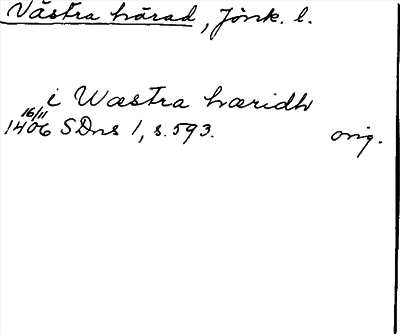 Västra härad, Jönk. l.
i Wæstra hæridh
16/11
1406 SDns 1, s. 593. orig.